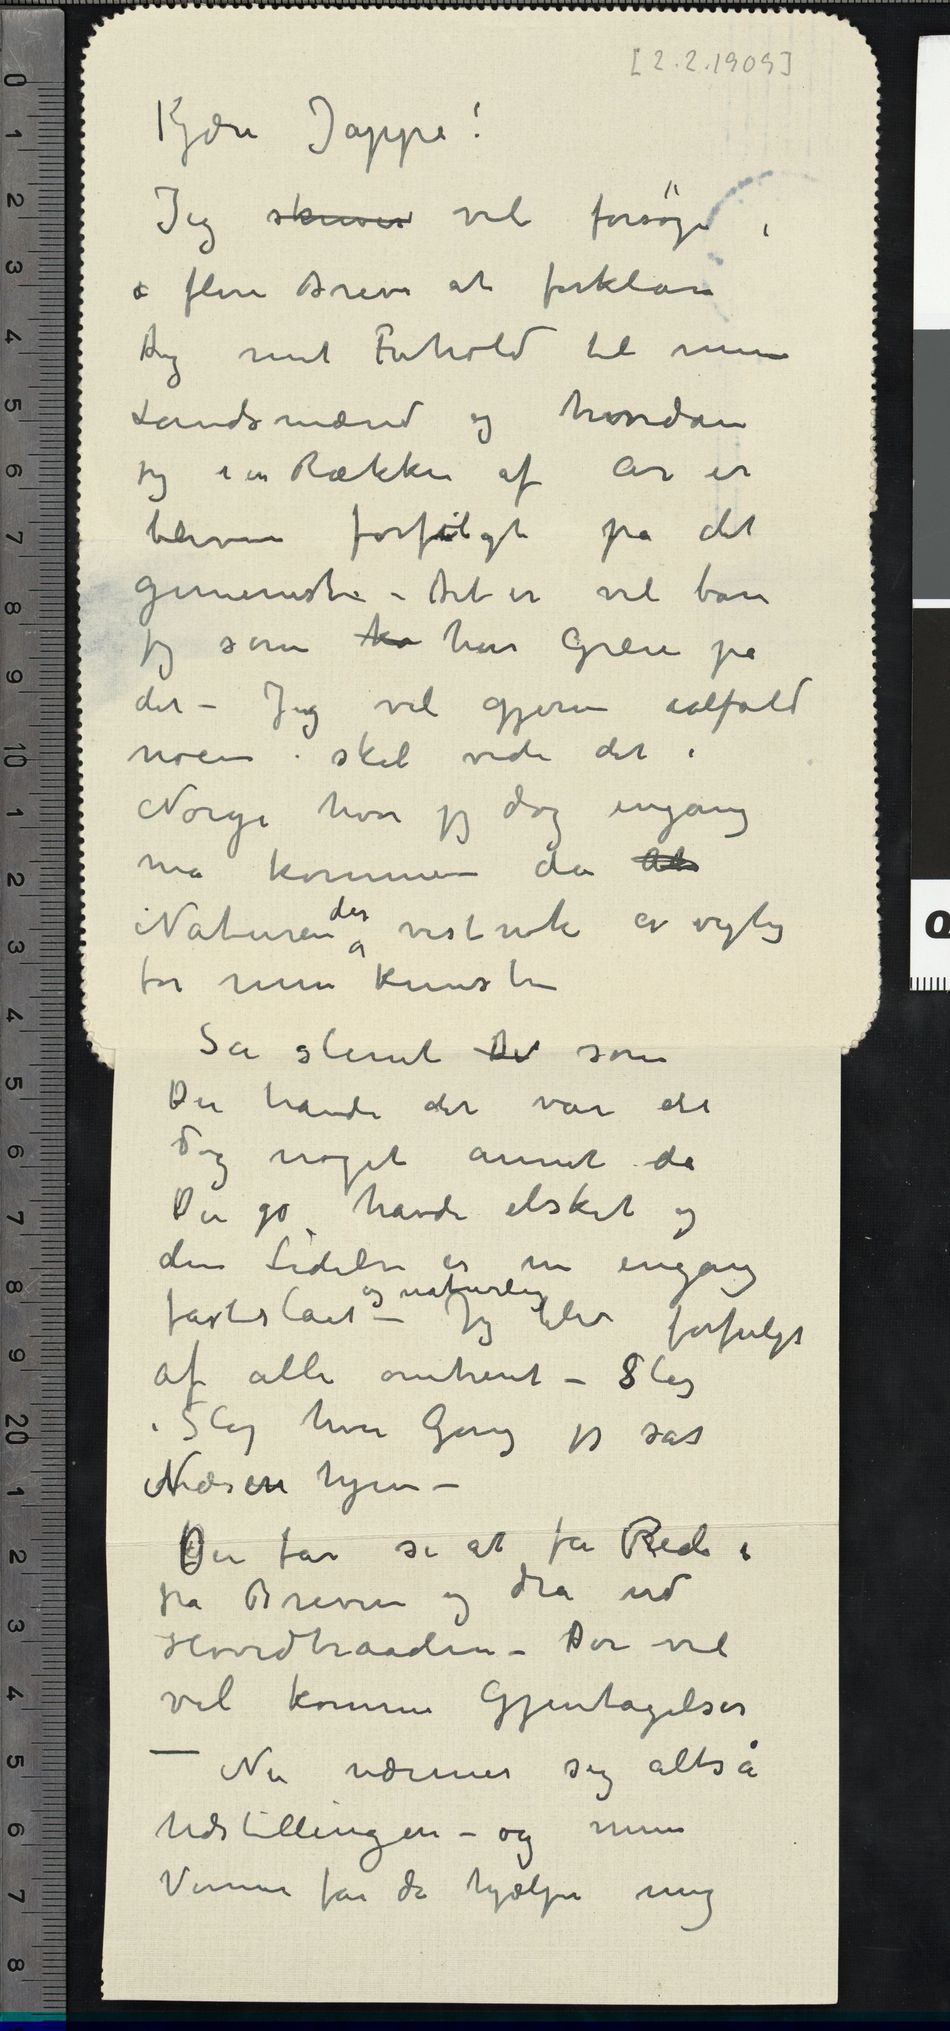 [2.2.1909]
Kjære Jappe!
Jeg skriver vil forsøge i
i flere Breve at forklare
Dig mit Forhold til mine
Landsmænd og hvordan
jeg i en Række af År er
bleven forfulgt på det
gemeneste – Det er vel bare
jeg som ha har Græie på
det – Jeg vil gjerne ialfald
noen skal vide det i
Norge hvor jeg dog engang
må komme da
Naturen der vistnok er vigtig
for min Kunst
Så slemt Det som
Du havde det var det
dog noget annet da
Du jo havde elsket og
den Lidelse er nu engang
fastslået og naturlig – Jeg blev forfulgt
af alle omtrent – Slag
i Slag hver Gang jeg sat
Næsen hjem –
Du får se at få Rede i
på Brevene og dra ud
Hovedtraaden – Der vil
vel komme Gjentagelser
– Nu nærmer sig altså
Udstillingen – og mine
Venner får da hjælpe mig